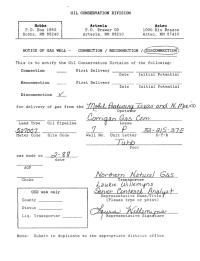 OIL CONSERVATION DIVISION
Hobbs Artesia Aztec
P.O. Box 1980 P.O. Drawer DD 1000 Rio Brazos
Hobbs, NM 88240 Artesia, NM 88210 Aztec, NM 87410
NOTICE OF GAS WELL - CONNECTION / RECONNECTION / DISCONNECTION
This is to notify the Oil Conservation Division of the following:
Connection First Delivery
Date Initial Potential
Reconnection First Delivery
Date Initial Potential
Disconnection
for delivery of gas from the Mobil Producing Texas and N. Mexico
Operator
Corrigan Gas Com
Land Type Oil Pipeline Lease
7 P
Meter Code Site Code Well No. Unit Letter S-T-R
Tubb
Pool
was made on 2-88
date
AOF
Northern Natural Gas
Choke Transporter
Laurie Willemyns
Senior Contract Analyst
OCD use only Representative Name/Title
(Please type or print)
County
District
Laurie Willemyns
Liq. Transporter Representative Signature
Note: Submit in duplicate to the appropriate district office.